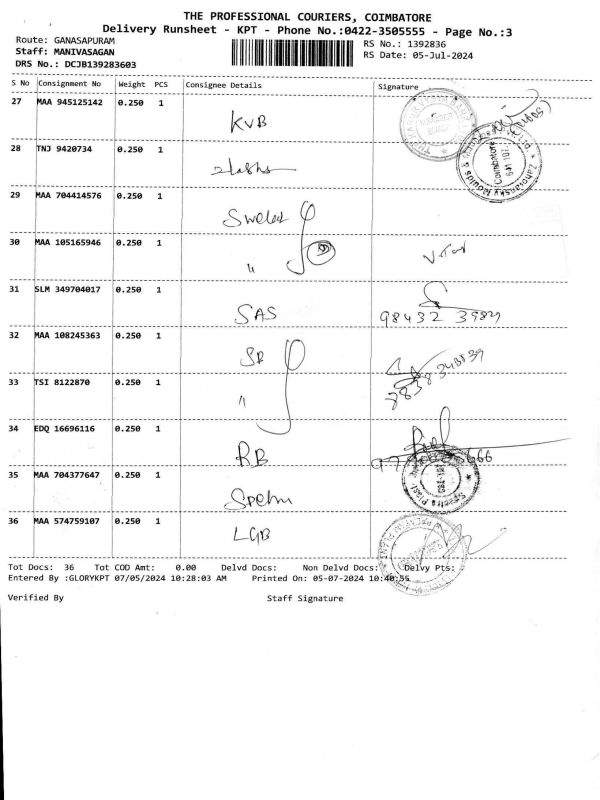 THE PROFESSIONAL COURIERS, COIMBATORE
Delivery Runsheet - KPT - Phone No.:0422-3505555 - Page No.:3
Route: GANASAPURAM
RS No.: 1392836
Staff: MANIVASAGAN
RS Date: 05-Jul-2024
DRS No.: DCJB139283603
S No Consignment No Weight PCS Consignee Details Signature
27 MAA 945125142 0.250 1 KVB
28 TNJ 9420734 0.250 1
29 MAA 704414576 0.250 1
30 MAA 105165946 0.250 1 "
31 SLM 349704017 0.250 1 SAS
32 MAA 108245363 0.250 1 SR
33 TSI 8122870 0.250 1 "
34 EDQ 16696116 0.250 1 RB
35 MAA 704377647 0.250 1
36 MAA 574759107 0.250 1 LGB
Tot Docs: 36 Tot COD Amt: 0.00 Delvd Docs: Non Delvd Docs: Delvy Pts:
Entered By :GLORYKPT 07/05/2024 10:28:03 AM Printed On: 05-07-2024 10:40:55
Verified By Staff Signature